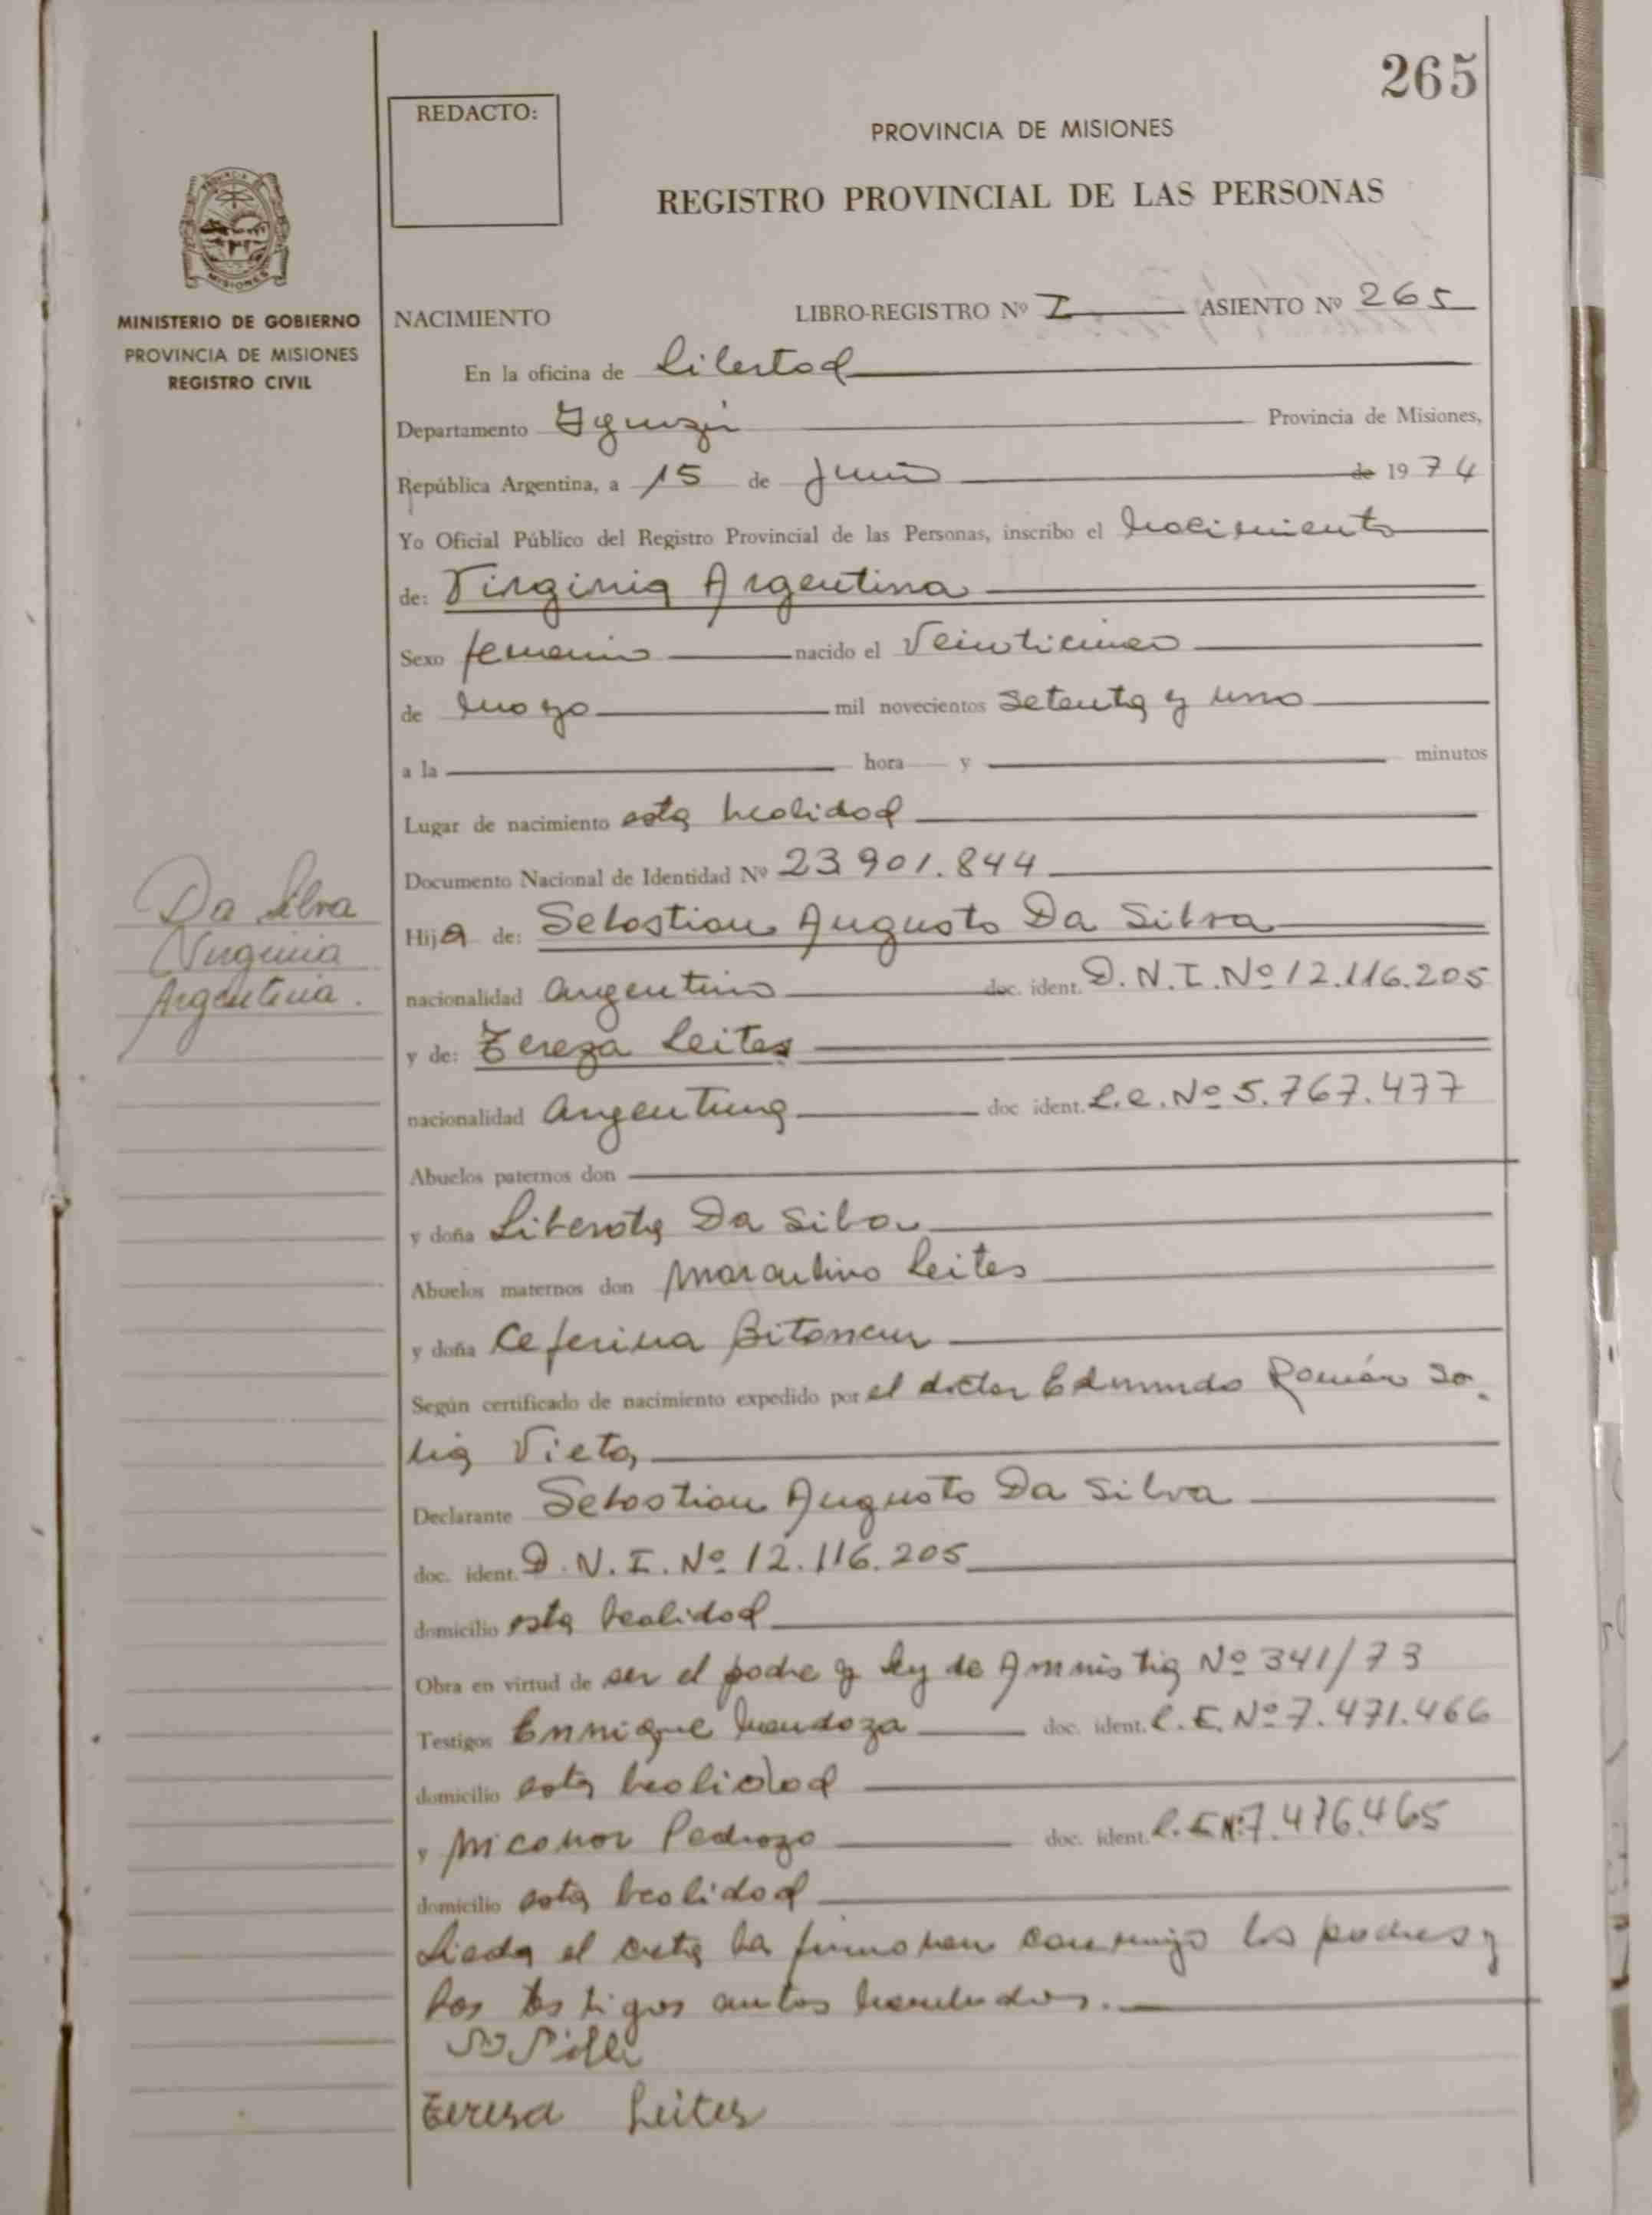 265
REDACTO:
PROVINCIA DE MISIONES
REGISTRO PROVINCIAL DE LAS PERSONAS
MISIONES
MINISTERIO DE GOBIERNO
PROVINCIA DE MISIONES
REGISTRO CIVIL
NACIMIENTO LIBRO-REGISTRO Nº I ASIENTO Nº 265
En la oficina de Libertad
Departamento Iguazú Provincia de Misiones,
República Argentina, a 15 de Junio de 1974
Yo Oficial Público del Registro Provincial de las Personas, inscribo el nacimiento
de: Virginia Argentina
Sexo femenino nacido el Veinticinco
de mayo mil novecientos setenta y uno
a la hora y minutos
Lugar de nacimiento esta localidad
Documento Nacional de Identidad Nº 23.901.844
Da Silva
Virginia
Argentina.
Hija de: Sebastian Augusto Da Silva
nacionalidad argentino doc. ident. D.N.I. Nº 12.116.205
y de: Tereza Leites
nacionalidad argentina doc. ident. L.C. Nº 5.767.477
Abuelos paternos don
y doña Liberata Da Silva
Abuelos maternos don Marculino Leites
y doña Ceferina Bitancur
Según certificado de nacimiento expedido por el doctor Edmundo Román
Declarante Sebastian Augusto Da Silva
doc. ident. D.N.I. Nº 12.116.205
domicilio esta localidad
Obra en virtud de ser el padre y ley de Amnistia Nº 341/73
Testigos Enrique Mendoza doc. ident. L.E. Nº 7.471.466
domicilio esta localidad
y Nicanor Pedrozo doc. ident. L.E Nº 7.476.465
domicilio esta localidad
Leida el acta la firmaran conmigo los padres y
los testigos antes
Teresa Leites